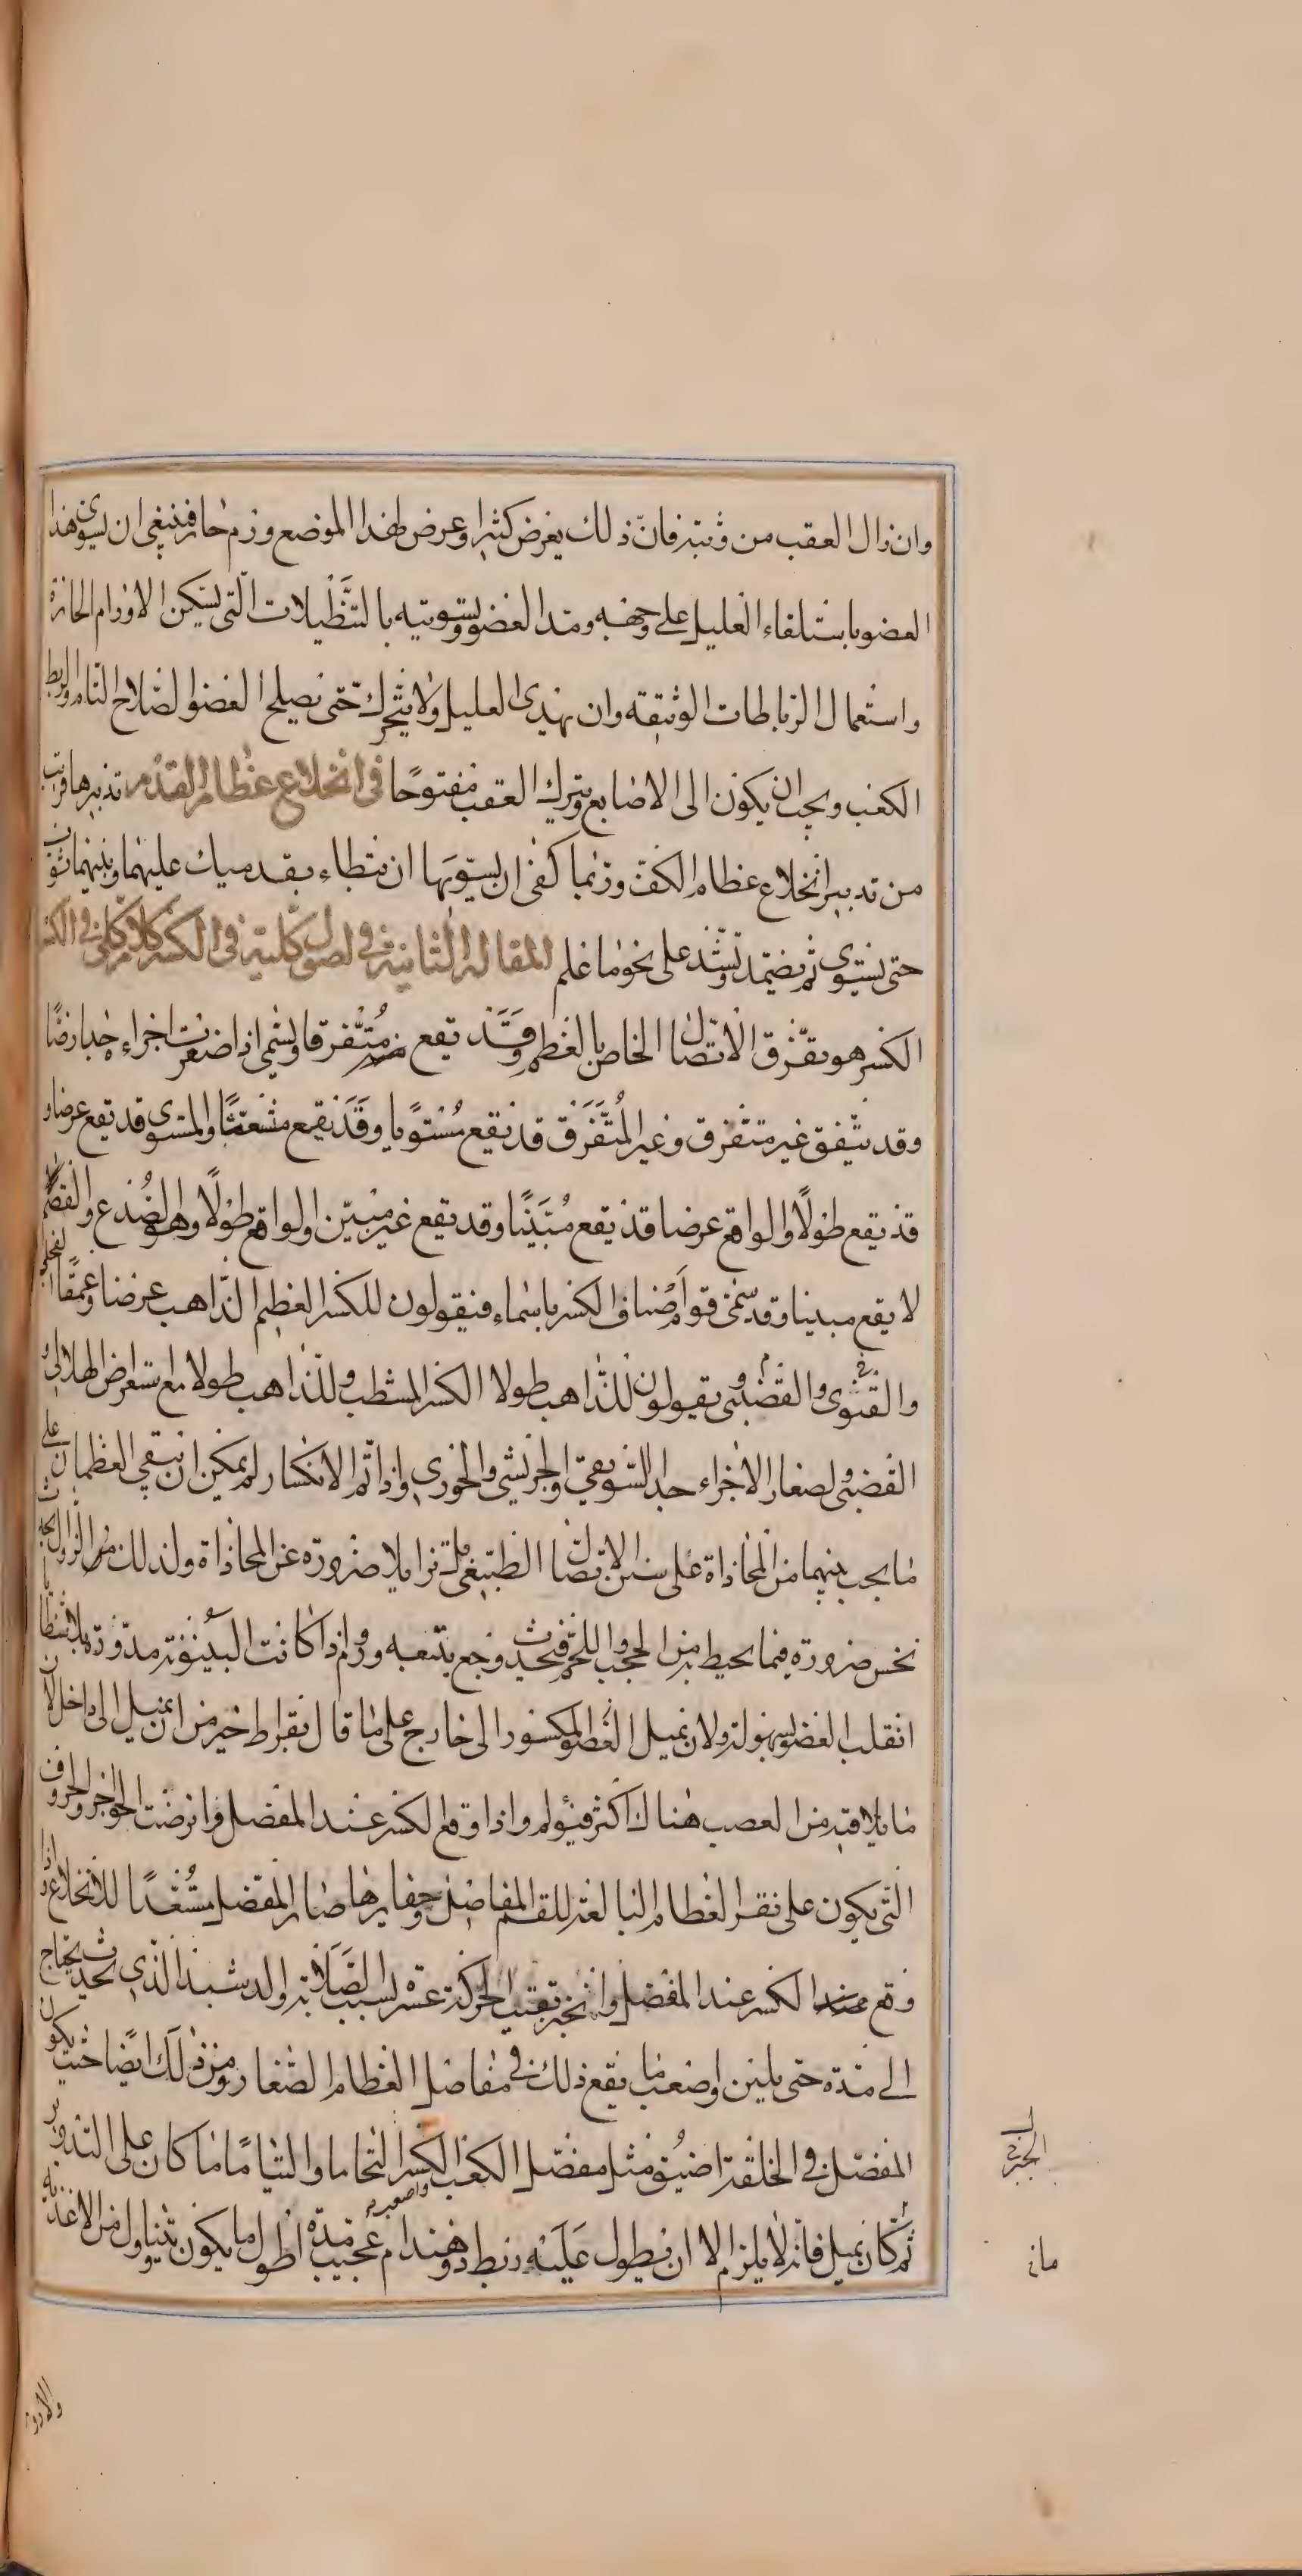 وان زال العقب من وثبة فان ذلك يعرض كثيرا وعرض لهذا الموضع ورم حار فينبغى ان يسوى هذا
العضو باستلقاء العليل على وجهه ومد العضو وتسويته بالتنظيلات التى يسكن الاورام الحارة
واستعمال الرباطات الوثيقة وان يهدى العليل ولا يتحرك حتى يصلح العضو الصلاح التام والربط
الكعب ويجب ان يكون الى الاصابع ويترك العقب مفتوحا فى انخلاع عظام القدم تدبيرها قريب
من تدبير انخلاع عظام الكف وربما كفى ان يسويها ان يتطاء بقدميك عليهما وبينهما ثوب
حتى يستوى ثم يضمد وتشد على نحو ما علم المقالة الثانية فى اصول كلية فى الكسر كلام كلى فى الكسر
الكسر هو تفرق الاتصال الخاص بالعظم وقد يقع متفرقا ويسمى اذا صغرت اجزاءه جدا رضا
وقد يتفق غير متفرق وغير المتفرق قد يقع مستويا وقد يقع متشعثا والمستوى قد يقع عرضا و
قد يقع طولا والواقع عرضا قد يقع مبينا وقد يقع غير مبين والواقع طولا وهو الصدع والفصم
لا يقع مبينا وقد سمى قوم اصناف الكسر باسماء فيقولون للكسر العظيم الذاهب عرضا وعمقا الفجلى
والقثوى والقضيبى ويقولون للذاهب طولا الكسر المشطب وللذاهب طولا مع استعراض الهلالى و
القضبى ولصغار الاجزاء جدا السويقى والجريشى والجوزى واذا تم الانكسار لم يمكن ان يبقى العظمان على
ما يجب بينهما من المحاذاة على سنن الاتصال الطبيعى بل تزايلا ضرورة عن المحاذاة ولذلك من الزوال يحدث
نخس ضرورة فيما يحيط به من الحجب واللحم فيحدث وجع يتبعه ورم اذا كانت البينونة مدورة بلا شظايا
انقلب العضو بسهولة ولان يميل العضو المكسور الى خارج على ما قال بقراط خير من ان يميل الى داخل لان
ما يلاقيه من العصب هناك اكثر فيؤلم واذا وقع الكسر عند المفصل فانرضت الحواجز والحروف
التى يكون على نقر العظام البالغة للقم المفاصل وحفايرها صار المفصل مستعدا للانخلاع واذا
وقع الكسر عند المفصل وانجبر بقيت الحركة عسرة لسبب الصلابة والدشبذ الذى يحدث يحتاج
الى مدة حتى يلين واصعب ما يقع ذلك فى مفاصل العظام الصغار ومن ذلك ايضا حيث يكون
المفصل فى الخلقة اضيق مثل مفصل الكعب الكسر التحاما والتياما ما كان على التدوير
ثم كان يميل فانه لا يلزم الا ان يطول عليه ربط ذو هندام عجيب مدة اطول ما يكون يتناول من الاغذية
واصعبه